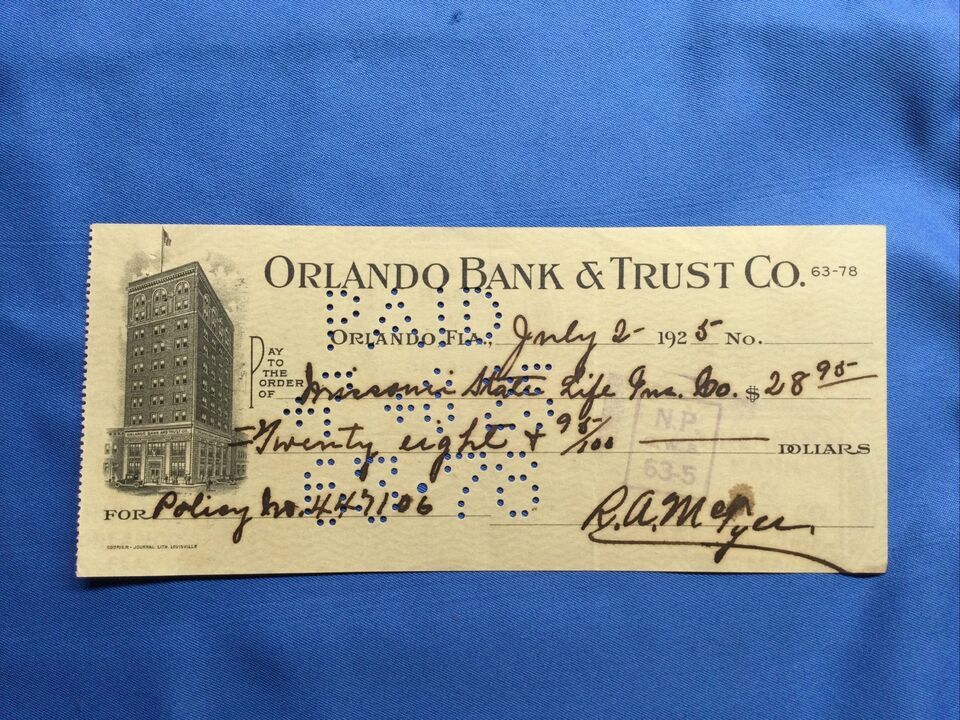 ORLANDO BANK & TRUST CO. 63-78
PAID
ORLANDO, FLA., July 2- 1925 No.
PAY TO THE ORDER OF Missouri State Life Ins. Co. $ 28 95
Twenty eight & 95/100 DOLLARS
N.P.
63-5
63 78
FOR Policy No. 447106 R.A. McTyer
ORLANDO BANK AND TRUST CO.
COURIER-JOURNAL LITH. LOUISVILLE